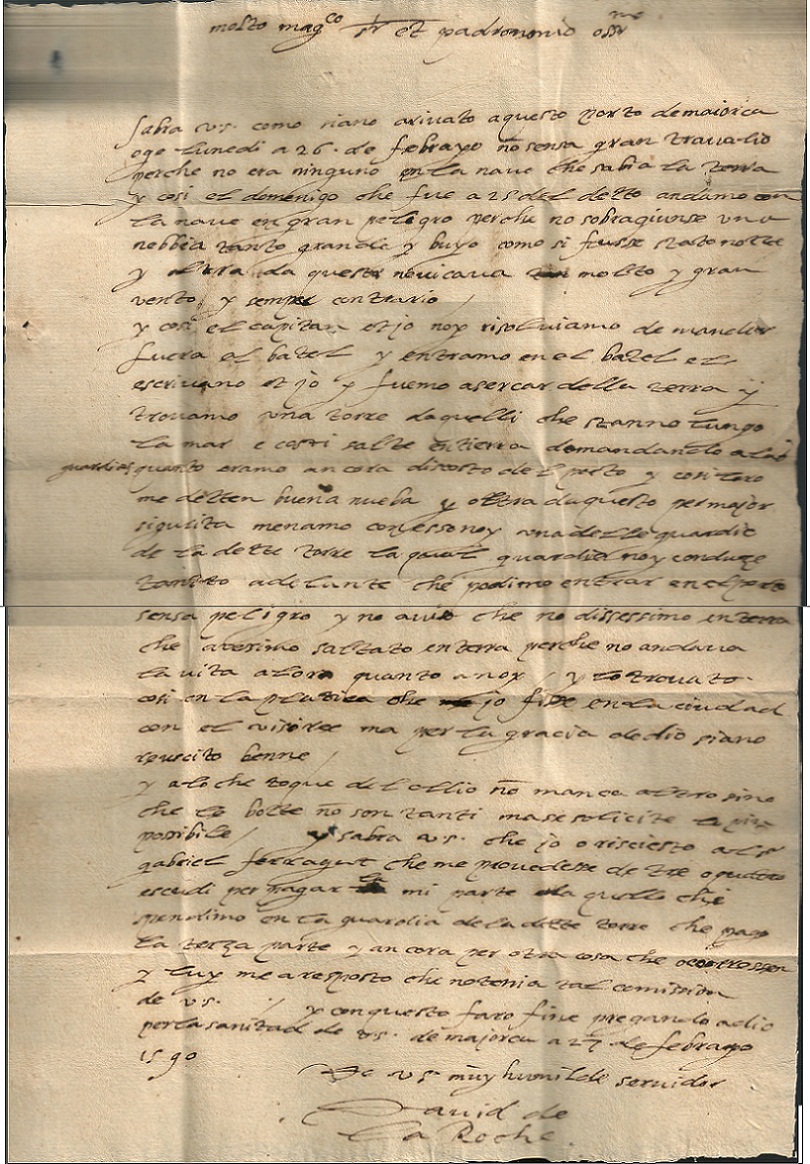 molto magco sr et padronomio ossrmo
sabra v.s. como siano arivato aquesto porto demaiorca
ogo lunedi a 26. de febrayo nõ sensa gran travalio
perche no era ninguno en la nave che sabia la terra
y cosi el domenigo che fue a 25 del detto andamo con
la nave en gran peligro perche no sobragiunse una
nebbia tanto grande y buyo como si fusse stato notte
y oltra da questo nevicava molto y gran
vento y semper contrario /
y cosi el capitan et jo noy risolviamo de mandar
fuera al batel y entramo en el batel el
escrivano et jo y fuemo asercar della terra y
trovamo una torre daquelli che stanno lungo
la mar e costi salte en tierra demandando a las
guardias quanto eramo ancora discosto del porto y cosi loro
me detten buena nueba y oltra daquesto per major
sigurita menamo con esso noy una delle guardie
de la dette torre la qual guardia noy conduze
tantto adelante che podimo entrar en el porto
sensa peligro y no che no dissessimo en terra
che averimo saltato en terra perche no andava
la vita alor quanto a noy / y lo trovato
cosi en la platica che jo fise en la ciudad
con el visoree ma per la gracia de dio siano
reuscito benne /
y alo che toque del ollio nõ manca altro sino
che le botte nõ son tanti ma se solicite lo piu
posibile / y sabra v.s. che jo o risciesto al sr
gabriel ferragut che me provedesse de tre o quatro
escudi per pagar la mi parte da quello che
spendimo en la guardia de la dette torre che pago
la terza parte y ancora per otra cosa che
y luy me a resposto che no tenia tal comission
de v.s. / y con questo faro fine pregando a dio
per la sanitad de v.s. de majorca a 27 de febrayo
1590
De v.s. muy humilde servidor
David de
la Roche